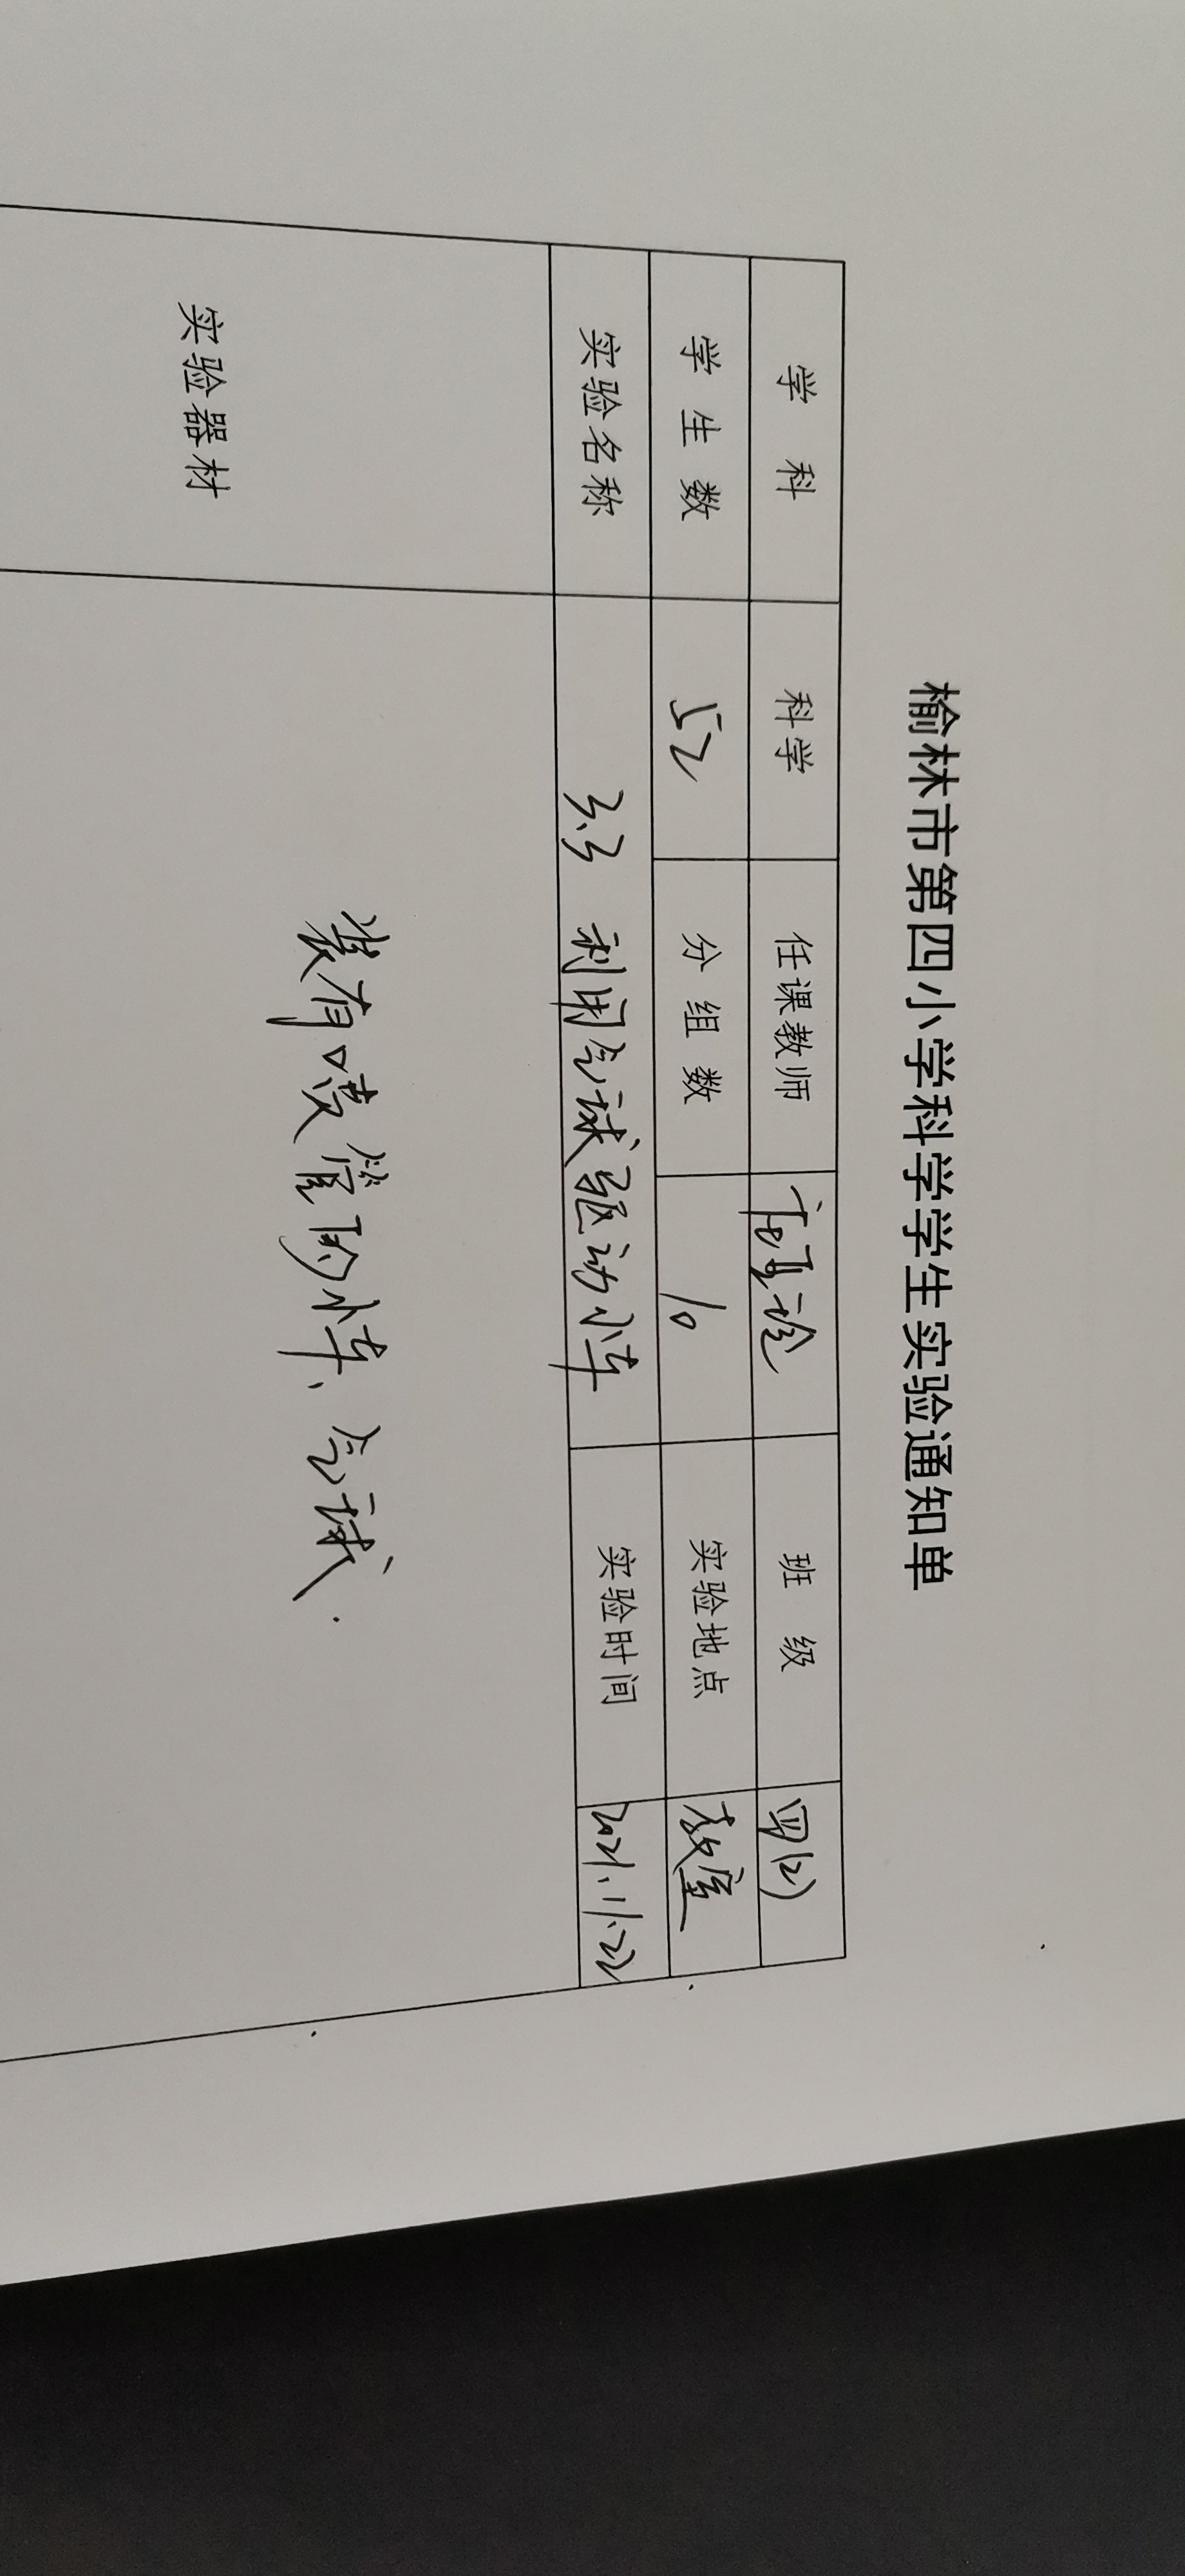 榆林市第四小学科学学生实验通知单
学 科 科学 任课教师 班 级 四(2)
学 生 数 52 分 组 数 10 实验地点 教室
实验名称 3.3 利用气球驱动小车 实验时间 2021.11.22
实验器材 装有喷管的小车、气球.